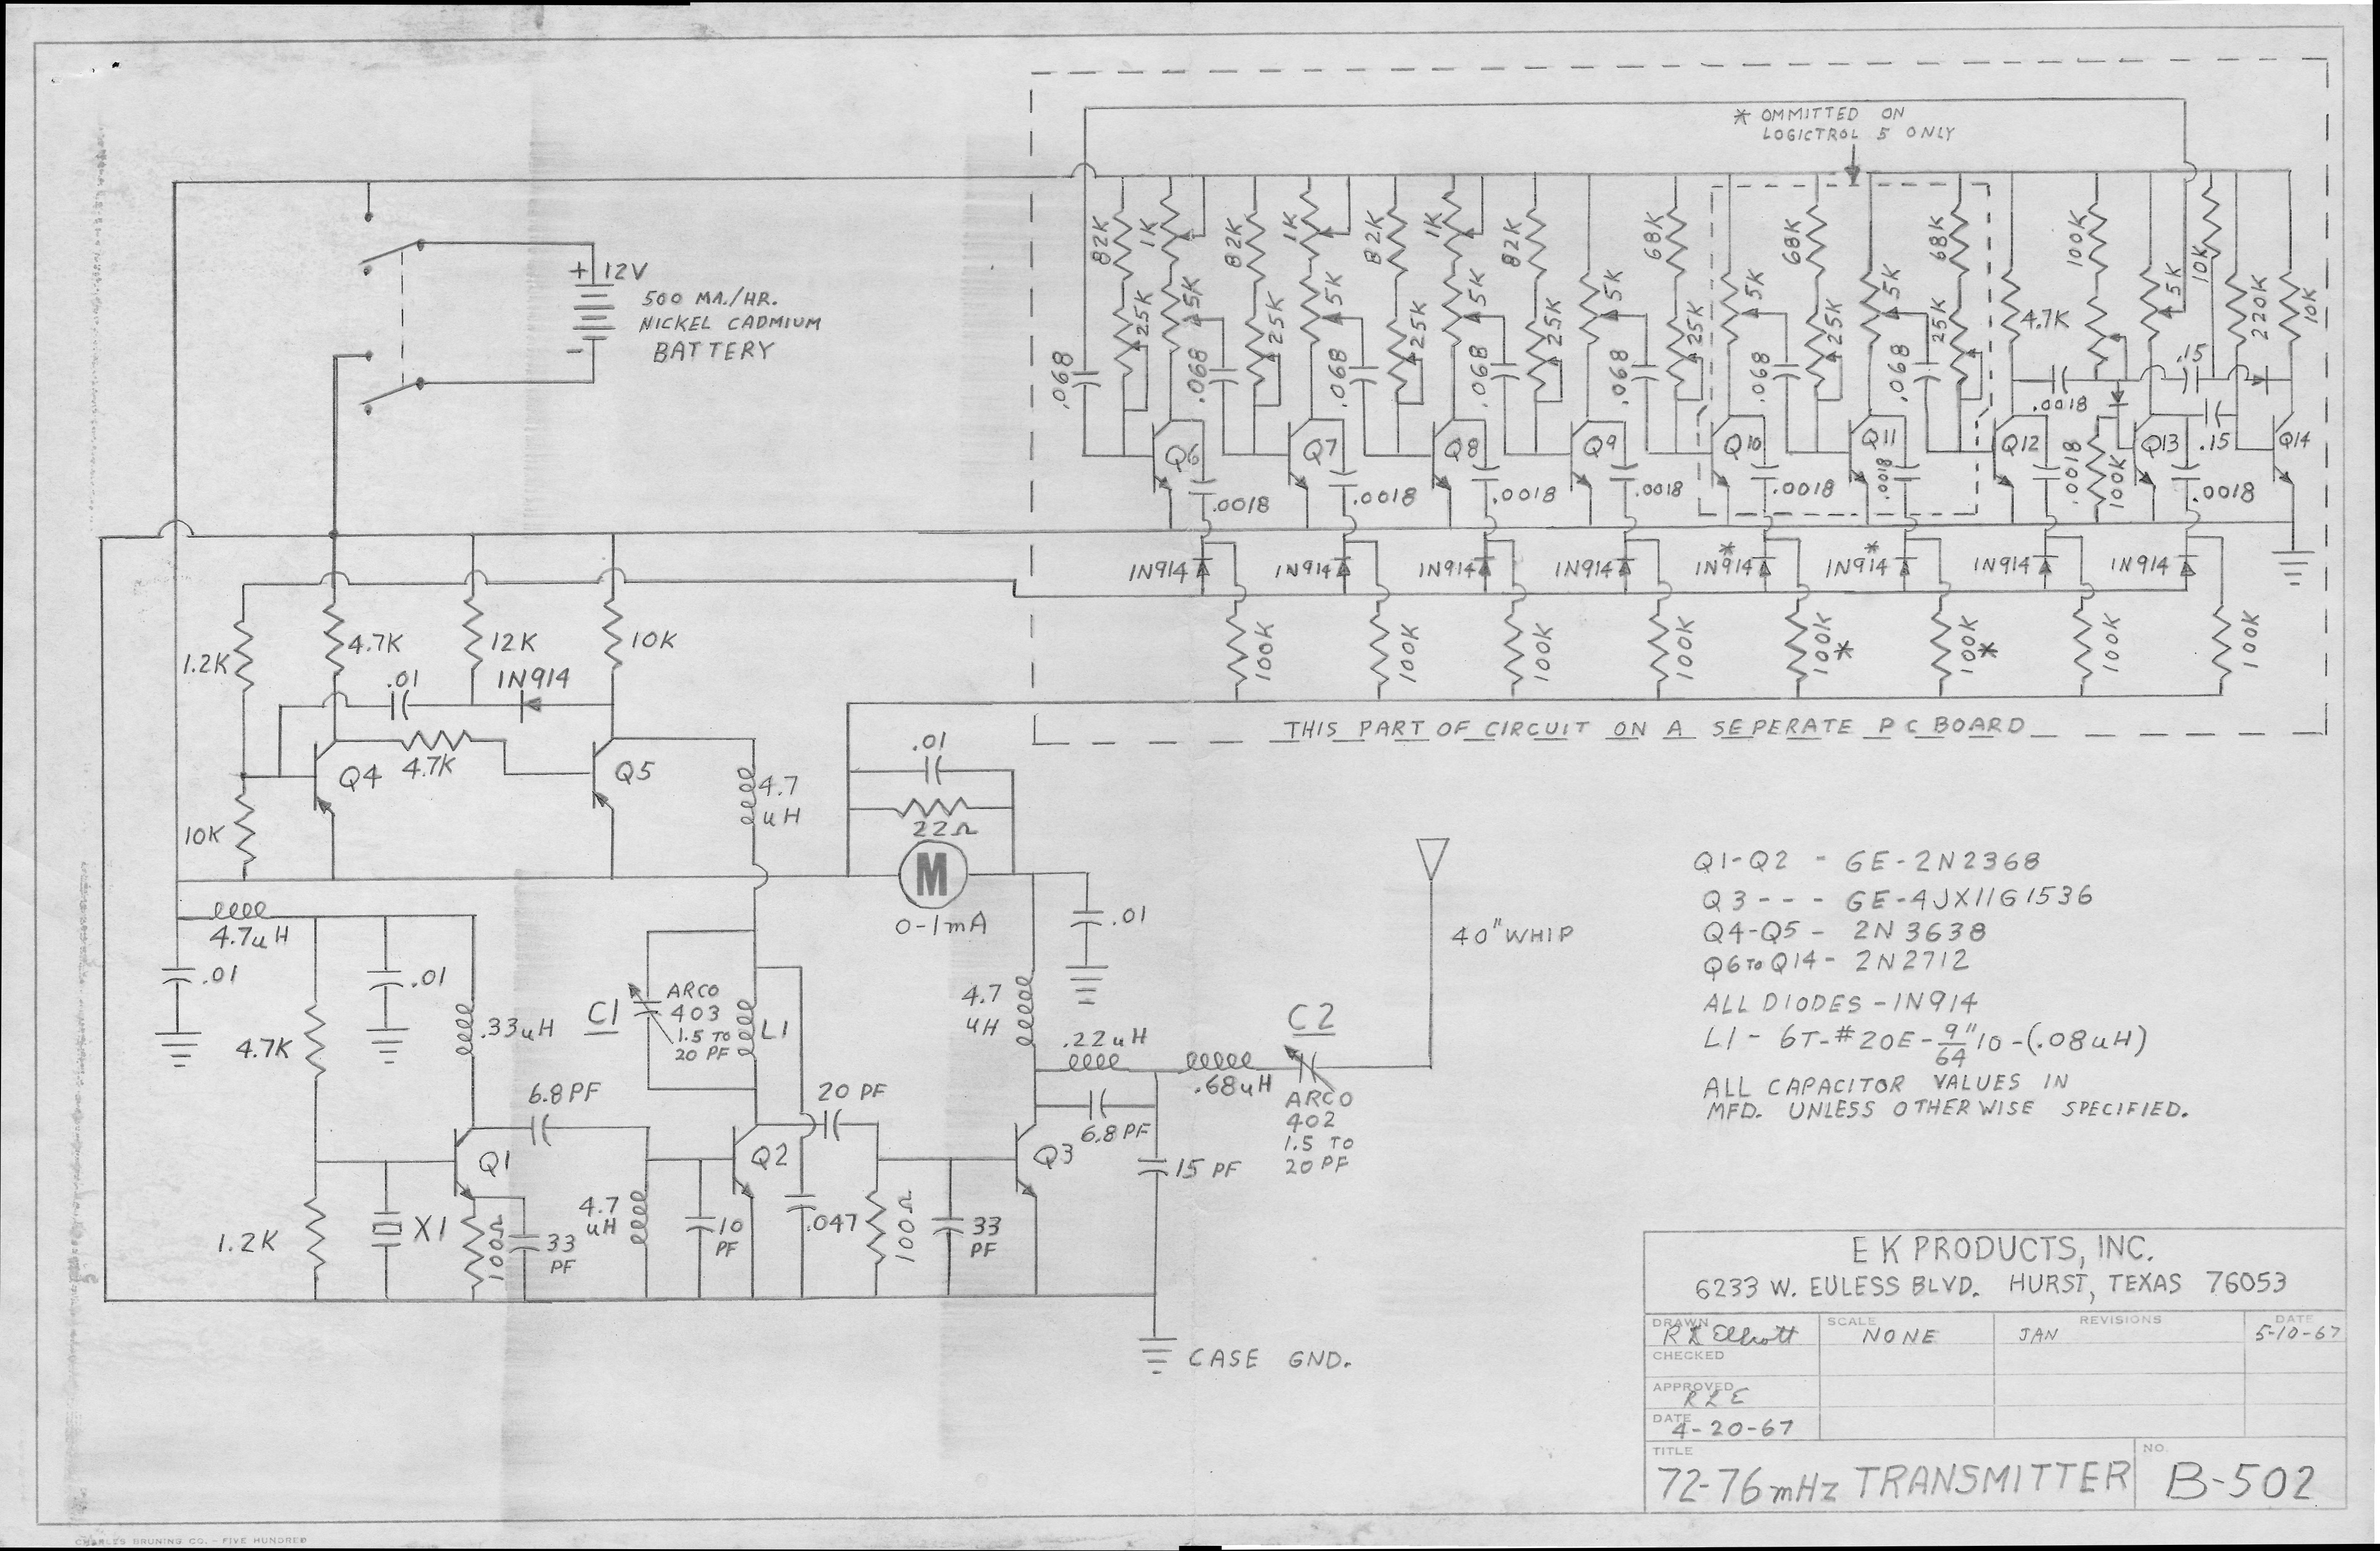 * OMMITTED ON
LOGICTROL 5 ONLY
+ 12V
500 MA./HR.
NICKEL CADMIUM
BATTERY
-
82K
1K
82K
1K
82K
1K
82K
68K
68K
68K
100K
5K
10K
220K
10K
25K
5K
25K
5K
25K
5K
25K
5K
25K
5K
25K
5K
25K
4.7K
.068
.068
.068
.068
.068
.068
.068
.0018
.15
.15
Q6
Q7
Q8
Q9
Q10
Q11
Q12
Q13
Q14
.0018
.0018
.0018
.0018
.0018
.0018
.0018
100K
.0018
1N914
1N914
1N914
1N914
*
1N914
*
1N914
1N914
1N914
100K
100K
100K
100K
100K*
100K*
100K
100K
THIS PART OF CIRCUIT ON A SEPERATE PC BOARD
1.2K
4.7K
12K
10K
.01
1N914
Q4
4.7K
Q5
4.7
uH
10K
.01
22Ω
M
0-1mA
.01
4.7uH
.01
.01
4.7K
.33uH
C1
ARCO
403
1.5 TO
20 PF
L1
4.7
uH
.22uH
.68uH
C2
ARCO
402
1.5 TO
20 PF
40" WHIP
6.8 PF
20 PF
6.8 PF
15 PF
Q1
Q2
Q3
1.2K
X1
100Ω
33
PF
4.7
uH
10
PF
.047
100Ω
33
PF
CASE GND.
Q1-Q2 - GE-2N2368
Q3 - - - GE-4JX11G1536
Q4-Q5 - 2N3638
Q6 TO Q14 - 2N2712
ALL DIODES - 1N914
L1 - 6T-#20E-9/64"ID-(.08uH)
ALL CAPACITOR VALUES IN
MFD. UNLESS OTHERWISE SPECIFIED.
E K PRODUCTS, INC.
6233 W. EULESS BLVD. HURST, TEXAS 76053
DRAWN
SCALE
REVISIONS
DATE
Elliott
NONE
JAN
5-10-67
CHECKED
APPROVED
RLE
DATE
4-20-67
TITLE
NO.
72-76 mHz TRANSMITTER
B-502
CHARLES BRUNING CO. - FIVE HUNDRED